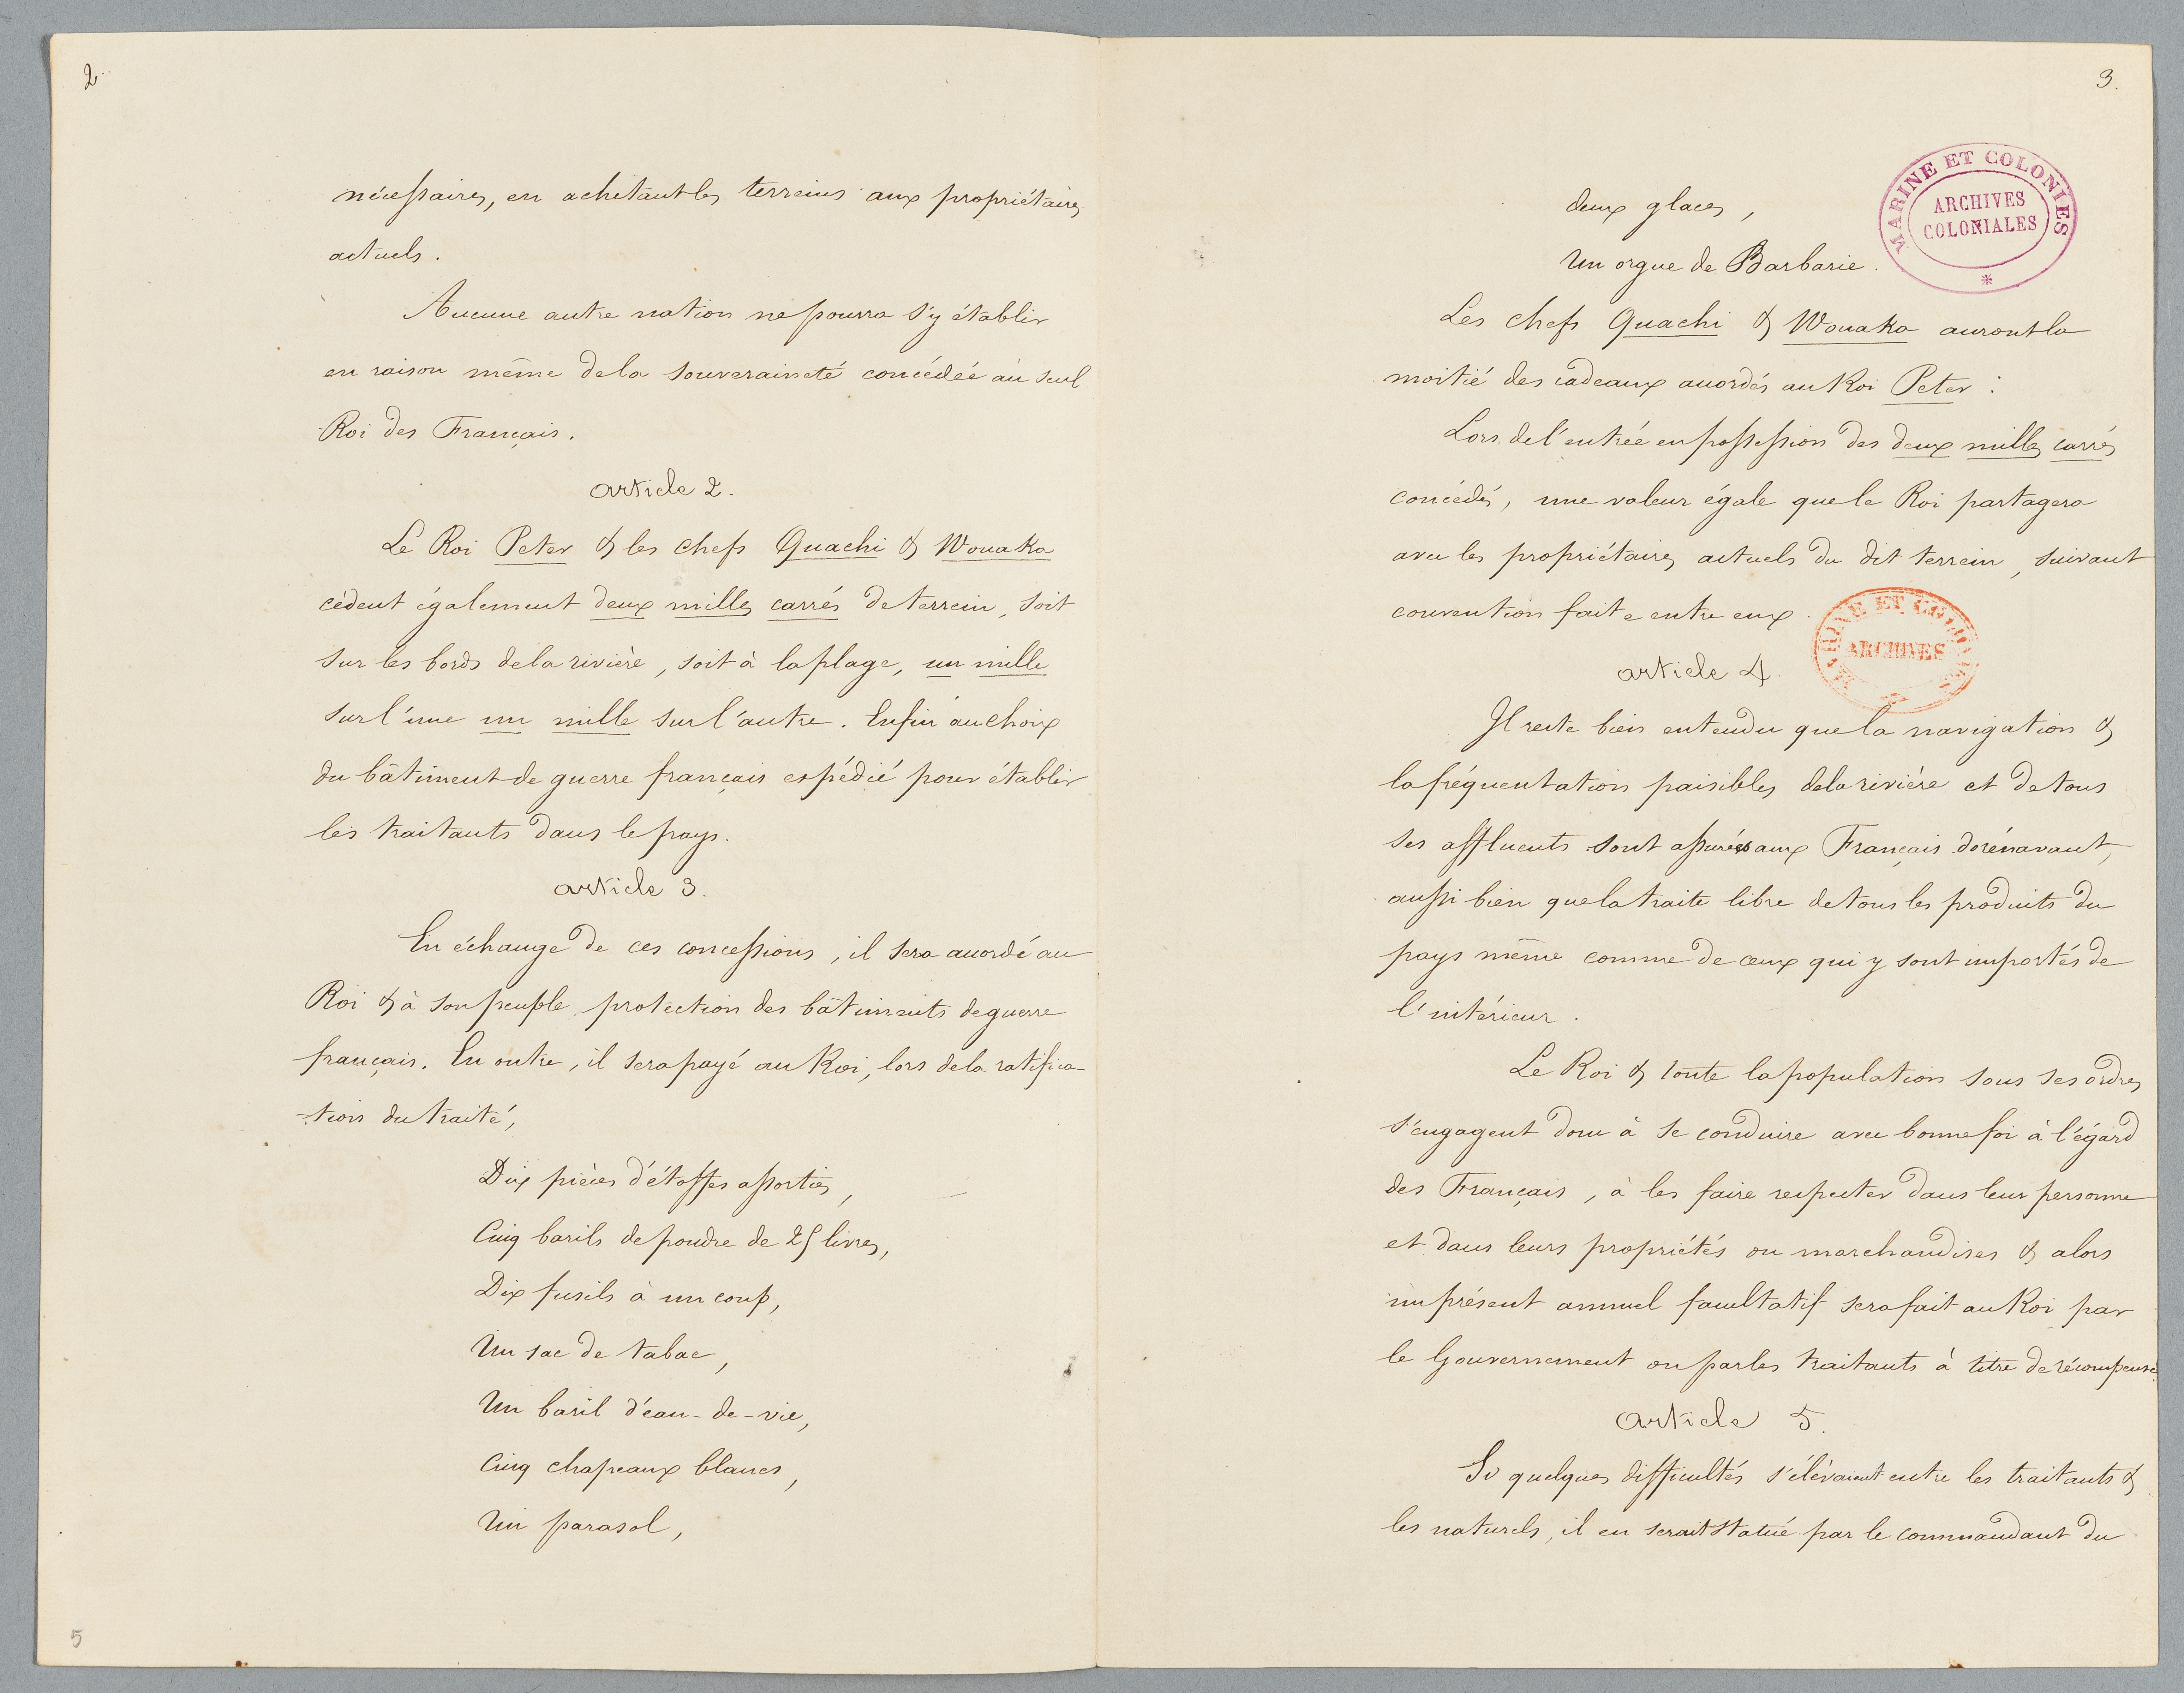 2.
nécessaires, en achetant les terreins aux propriétaires
actuels.
Aucune autre nation ne pourra s'y établir
en raison même de la souveraineté concédée au seul
Roi des Français.
article 2.
Le Roi Peter & les chefs Quachi & Wouaka
cèdent également deux milles carrés de terrein, soit
sur les bords de la rivière, soit à la plage, un mille
sur l'une un mille sur l'autre. Enfin au choix
du bâtiment de guerre français expédié pour établir
les traitants dans le pays.
article 3.
En échange de ces concessions, il sera accordé au
Roi & à son peuple protection des bâtiments de guerre
français. En outre, il sera payé au Roi, lors de la ratifica-
-tion du traité,
Dix pièces d'étoffes assorties,
Cinq barils de poudre de 25 livres,
Dix fusils à un coup,
Un sac de tabac,
Un baril d'eau-de-vie,
Cinq chapeaux blancs,
Un parasol,
5
3.
MARINE ET COLONIES
ARCHIVES
COLONIALES
deux glaces,
Un orgue de Barbarie.
Les chefs Quachi & Wouaka auront la
moitié des cadeaux accordés au Roi Peter :
Lors de l'entrée en possession des deux milles carrés
concédés, une valeur égale que le Roi partagera
avec les propriétaires actuels du dit terrein, suivant
convention faite entre eux.
MARINE ET COLONIES
ARCHIVES
article 4.
Il reste bien entendu que la navigation &
la fréquentation paisibles de la rivière et de tous
ses affluents sont assurées aux Français dorénavant,
aussi bien que la traite libre de tous les produits du
pays même comme de ceux qui y sont importés de
l'intérieur.
Le Roi & toute la population sous ses ordres
s'engagent donc à se conduire avec bonne foi à l'égard
des Français, à les faire respecter dans leur personne
et dans leurs propriétés ou marchandises & alors
un présent annuel facultatif sera fait au Roi par
le Gouvernement ou par les traitants à titre de récompense.
article 5.
Si quelques difficultés s'élèvaient entre les traitants &
les naturels, il en serait statué par le commandant du